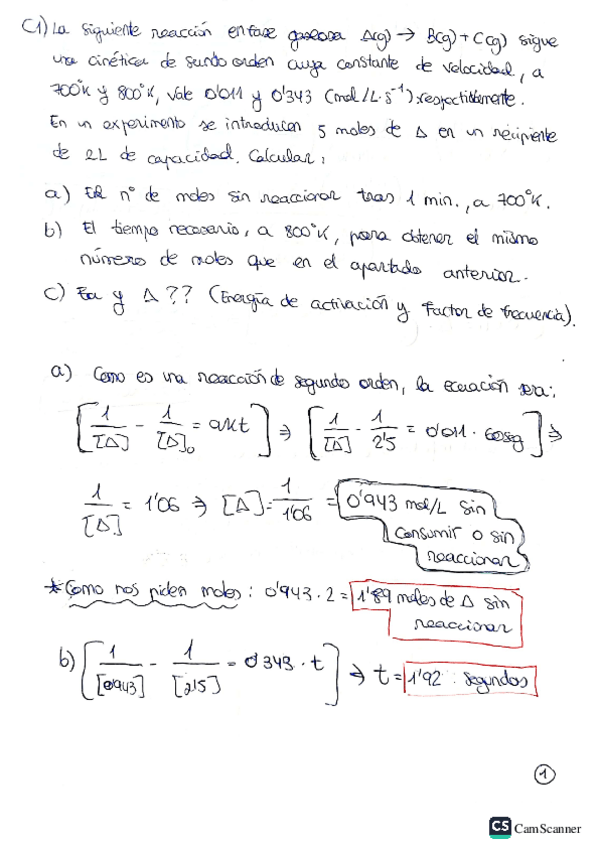 C1) La siguiente reacción en fase gaseosa A(g) → B(g) + C(g) sigue
una cinética de segundo orden cuya constante de velocidad, a
700°K y 800°K, vale 0'011 y 0'343 (mol/L·s⁻¹) respectivamente.
En un experimento se introducen 5 moles de A en un recipiente
de 2L de capacidad. Calcular:
a) El nº de moles sin reaccionar tras 1 min., a 700°K.
b) El tiempo necesario, a 800°K, para obtener el mismo
número de moles que en el apartado anterior.
c) Ea y A?? (Energía de activación y Factor de frecuencia).
a) Como es una reacción de segundo orden, la ecuación sera:
[1/[A] - 1/[A]₀ = aKt] ⇒ [1/[A] - 1/2'5 = 0'011 · 60seg] ⇒
1/[A] = 1'06 ⇒ [A] = 1/1'06 = 0'943 mol/L sin
consumir o sin
reaccionar
*Como nos piden moles: 0'943 · 2 = 1'89 moles de A sin
reaccionar
b) [1/[0'943] - 1/[2'5] = 0'343 · t] ⇒ t = 1'92 segundos
1
CS CamScanner